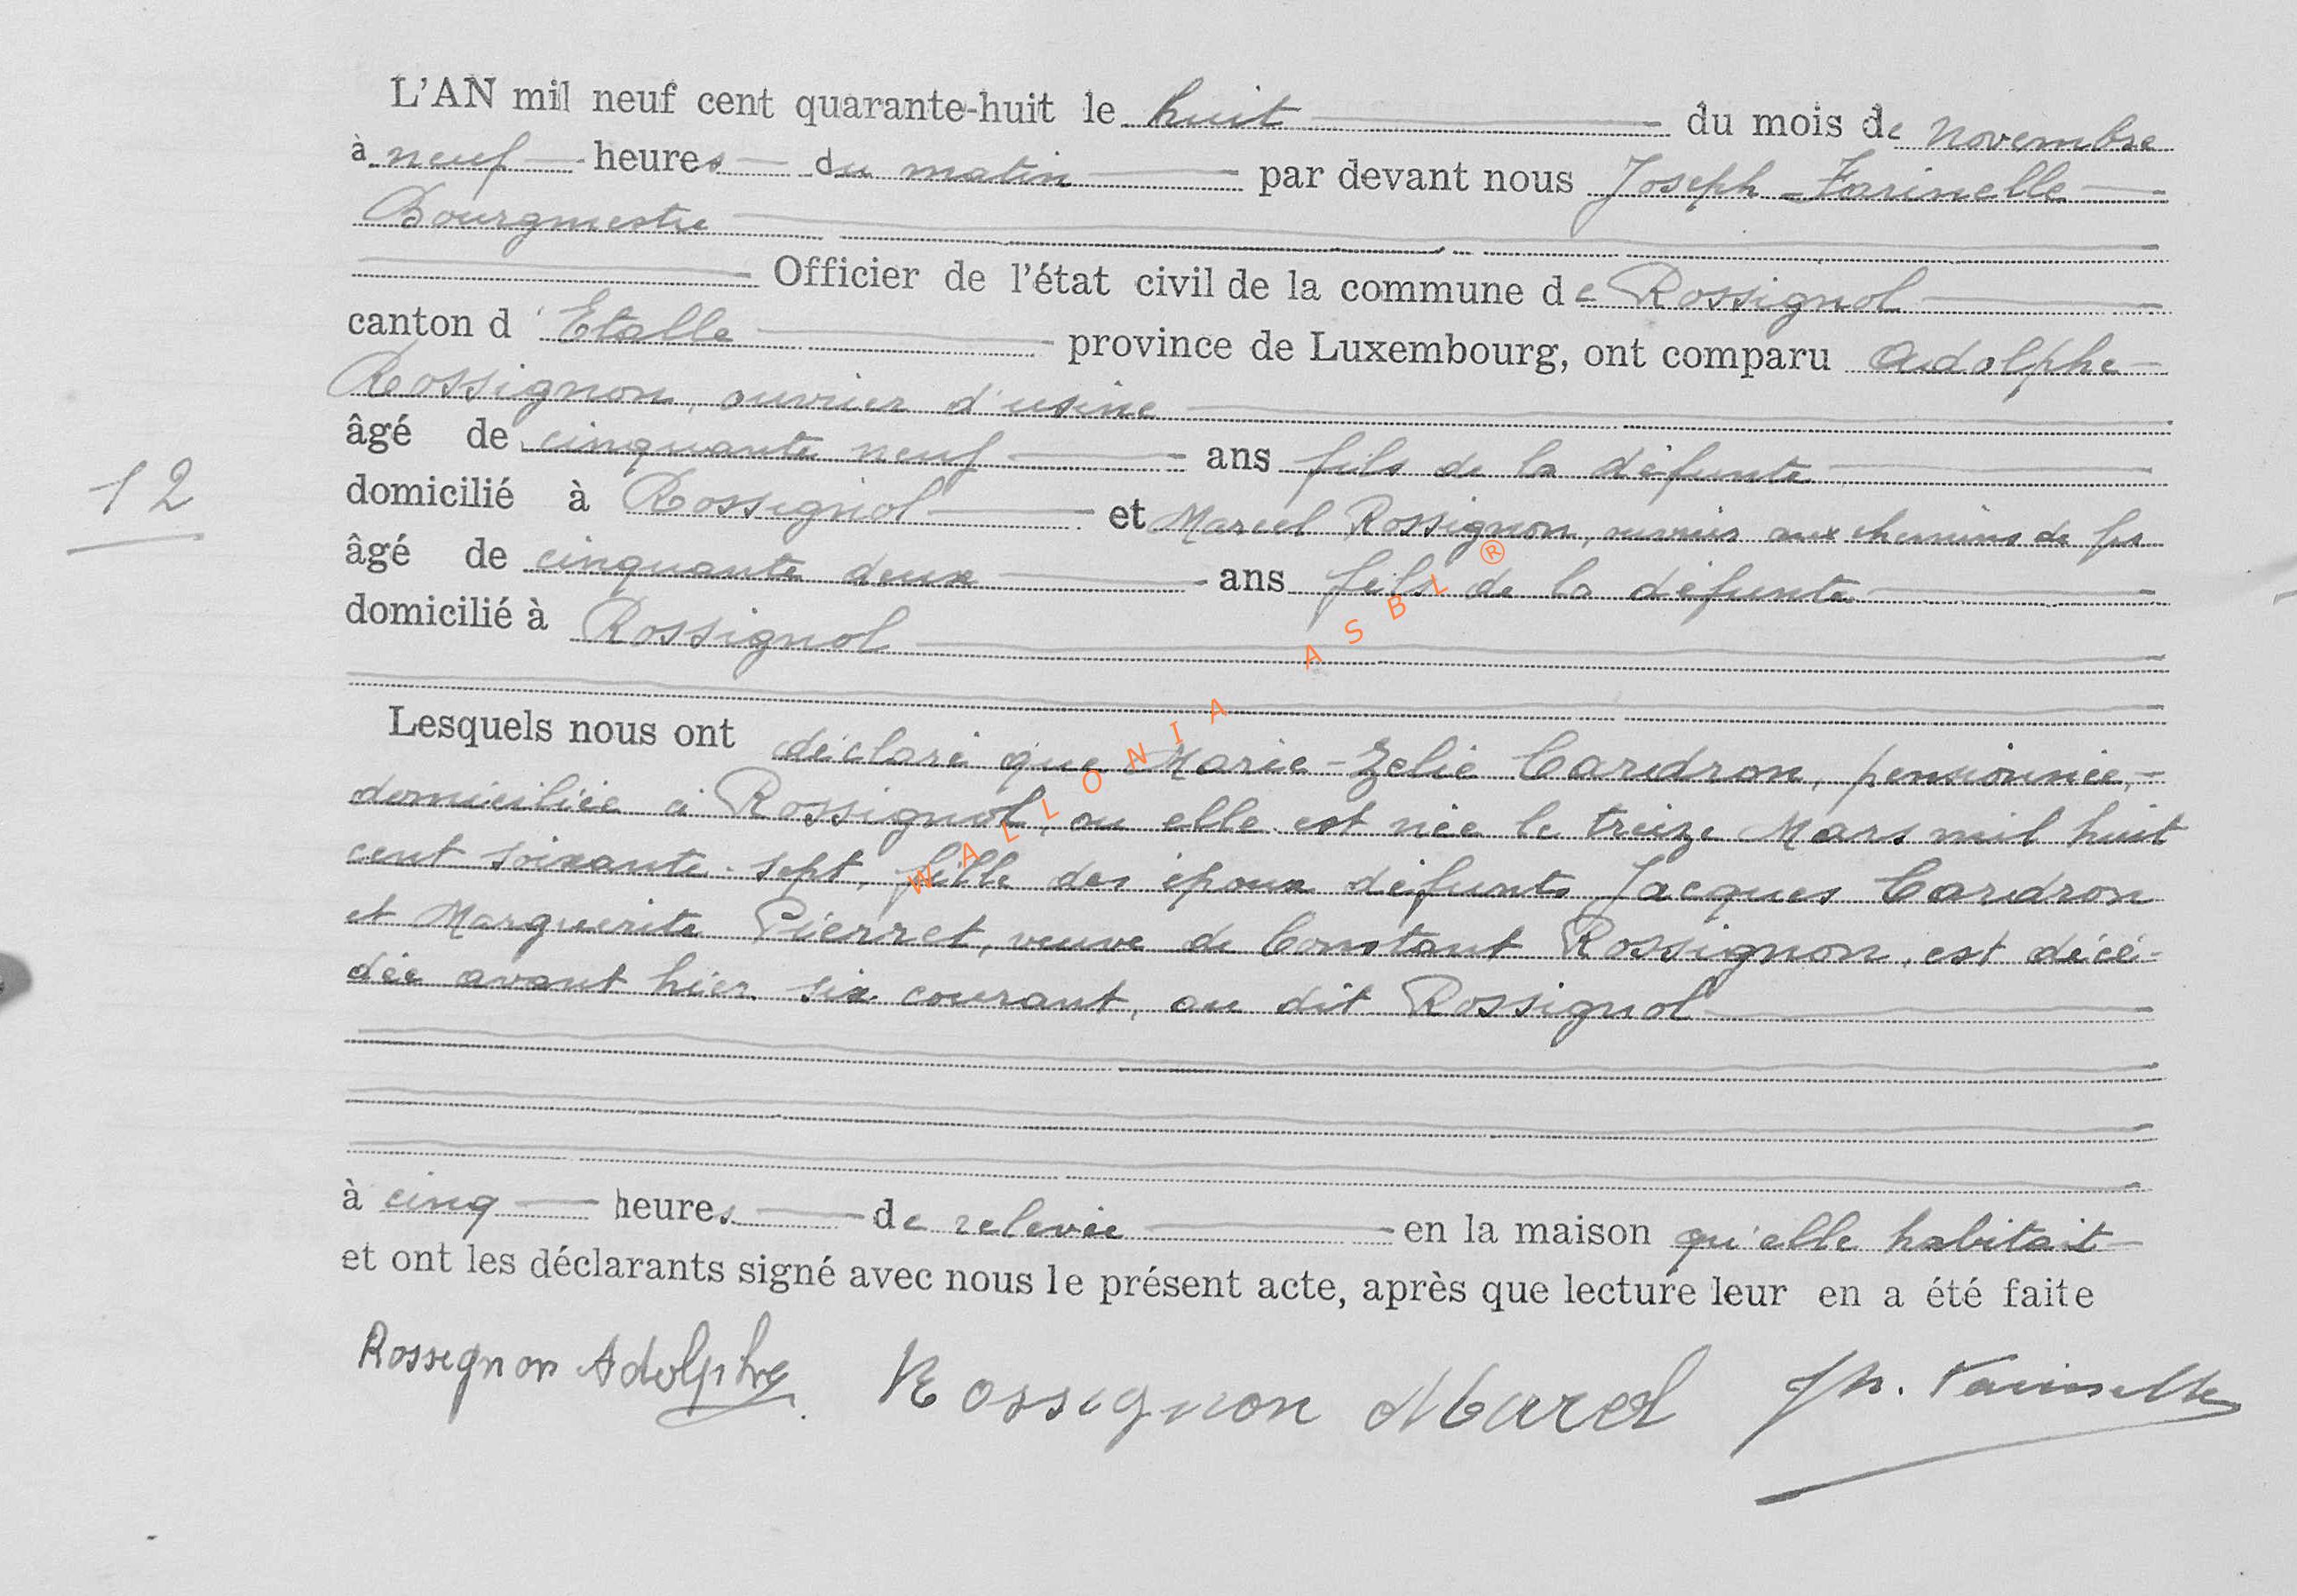 L'AN mil neuf cent quarante-huit le huit du mois de Novembre
à neuf heures du matin par devant nous Joseph Farinelle
Bourgmestre
Officier de l'état civil de la commune de Rossignol
canton d'Etalle province de Luxembourg, ont comparu Adolphe
Rossignon, ouvrier d'usine
âgé de cinquante neuf ans fils de la défunte
12
domicilié à Rossignol et Marcel Rossignon, ouvrier aux chemins de fer
âgé de cinquante deux ans fils de la défunte
domicilié à Rossignol
Lesquels nous ont déclaré que Marie-Zelie Caridron, pensionnée,
domiciliée à Rossignol, ou elle est née le treize Mars mil huit
cent soixante-sept, fille des époux défunts Jacques Caridron
et Marguerite Pierret, veuve de Constant Rossignon, est décé-
dée avant hier six courant, au dit Rossignol
à cinq heures de relevée en la maison qu'elle habitait
et ont les déclarants signé avec nous le présent acte, après que lecture leur en a été faite
Rossegnon Adolphe Rossignon Marcel Jh. Farinelle
WALLONIA ASBL ®